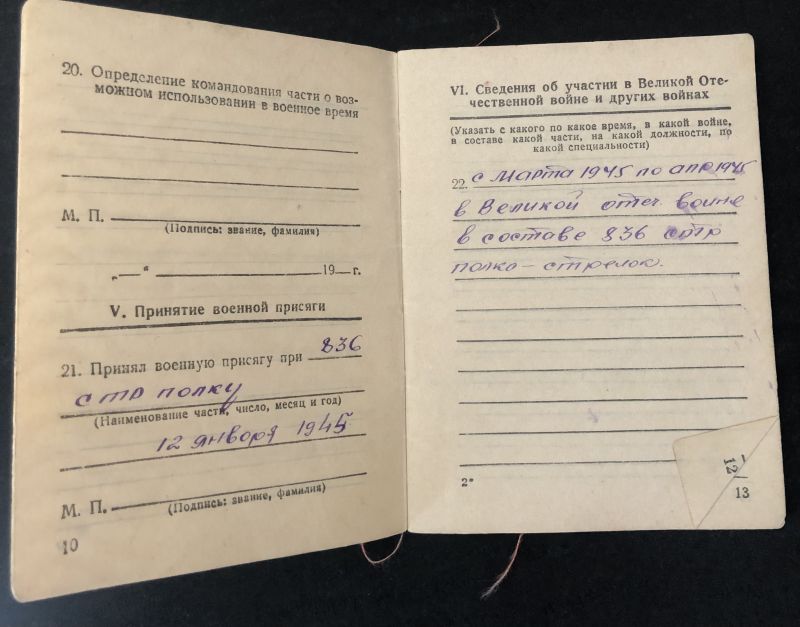 20. Определение командования части о воз-
можном использовании в военное время
М. П.
(Подпись: звание, фамилия)
„—“ 19— г.
V. Принятие военной присяги
21. Принял военную присягу при 836
стр полку
(Наименование части, число, месяц и год)
12 января 1945
М. П.
(Подпись: звание, фамилия)
10
VI. Сведения об участии в Великой Оте-
чественной войне и других войнах
(Указать с какого по какое время, в какой войне,
в составе какой части, на какой должности, по
какой специальности)
22. с Марта 1945 по апр 1945
в Великой отеч. воине
в составе 836 стр
полка - стрелок.
2*
12
13